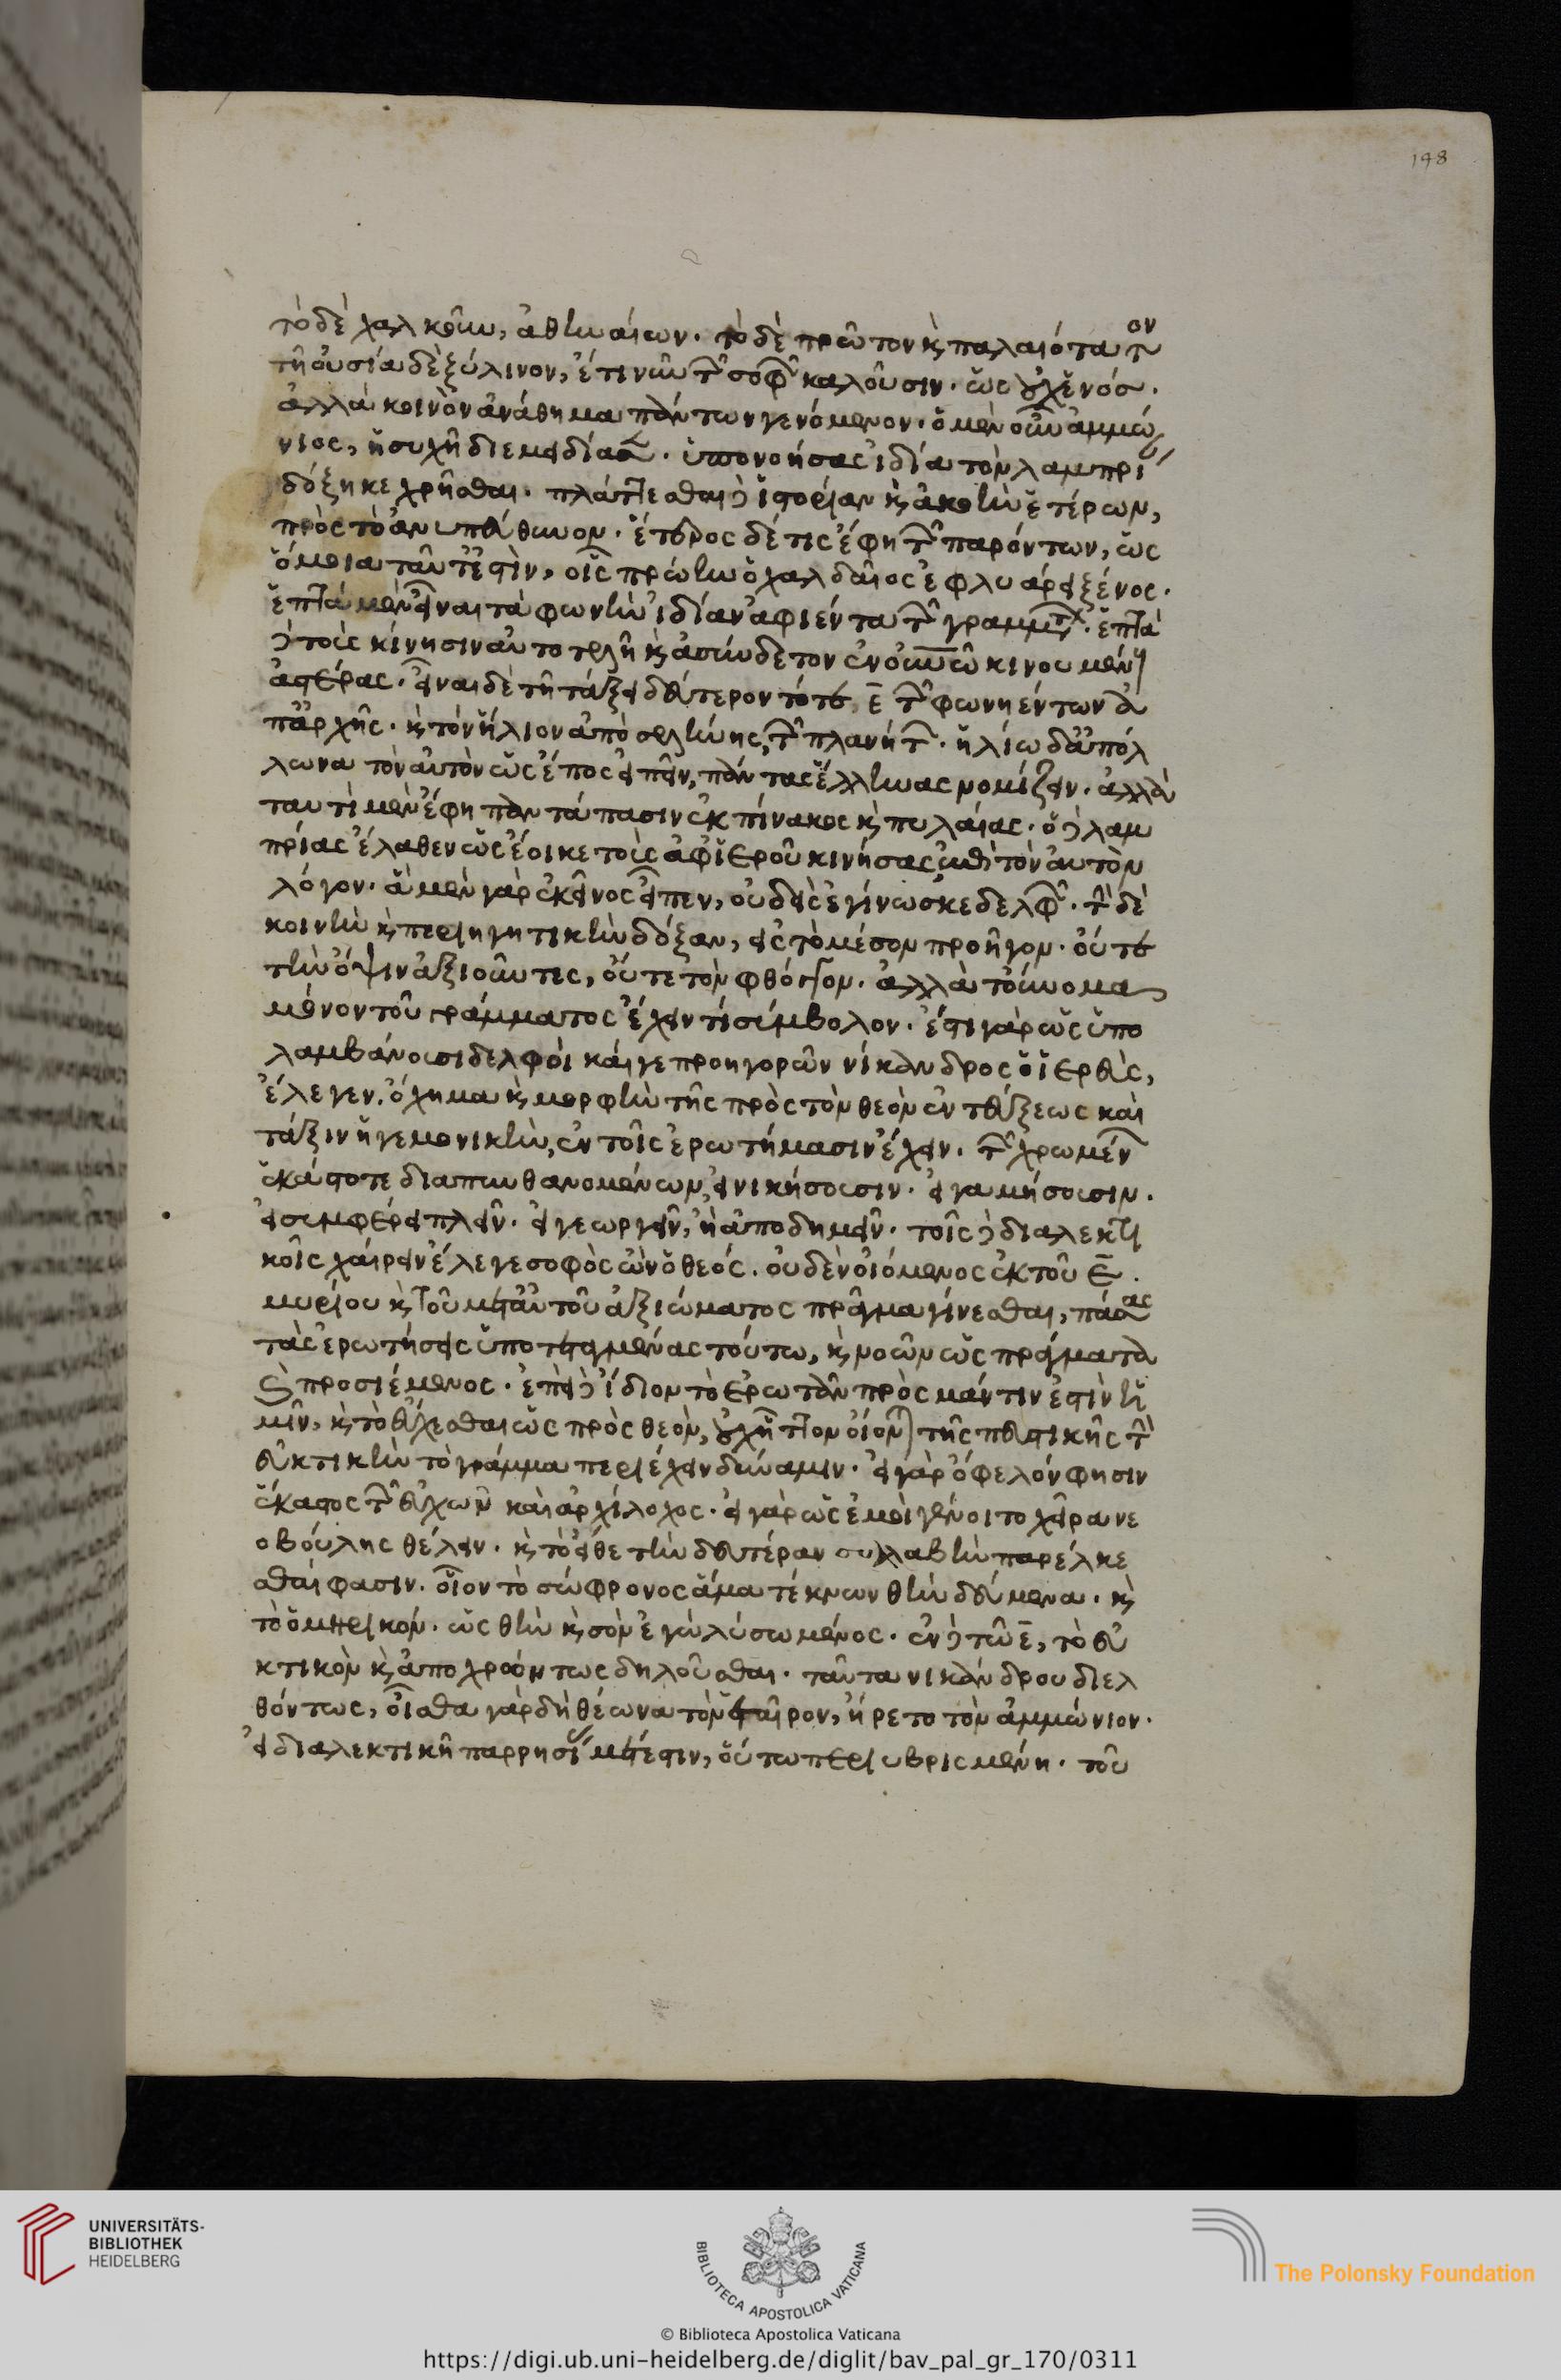 148
τὸ δὲ χαλκοῦν, ἀθηναίων. τὸ δὲ πρῶτον κ παλαιότατον
τῆ οὐσία δὲ ξύλινον, ἔτι νῦν τῶν σοφῶν καλοῦσιν. ὡς οὐχ ἑνόσ.
ἀλλὰ κοινὸν ἀνάθημα πάντων γενόμενον. ὁ μὲν οὖν ἀμμώ
νιος, ἡσυχῆ διεμειδίασεν. ὑπονοήσας ἰδία τὸν λαμπρίαν
δόξη κεχρῆσθαι. πλάττεσθαι δὲ ἱστορίαν κ ἀκοὴν ἑτέρων,
πρὸς τὸ ἀνυπεύθυνον. ἕτερος δέ τις ἔφη τῶν παρόντων, ὡς
ὅμοια ταῦτ' ἐστὶν, οἷς πρώην ὁ χαλδαῖος ἐφλυάρει ξένος.
ἑπτὰ μὲν εἶναι τὰ φωνὴν ἰδίαν ἀφιέντα τῶν γραμμάτων. ἑπτὰ
δὲ τοῖς κίνησιν αὐτοτελῆ κ ἀσύνδετον ἐν οὐνῶ κινουμένους
ἀστέρας. εἶναι δὲ τῆ τάξει δεύτερον τότε ε̄ τῶν φωνηέντων ἀ
π' ἀρχῆς. κ τὸν ἥλιον ἀπὸ σελήνης, τῶν πλανήτων. ἡλίω δ' ἀπόλ
λωνα τὸν αὐτὸν ὡς ἔπος εἰπεῖν, πάντας ἕλληνας νομίζειν. ἀλλὰ
ταυτὶ μὲν ἔφη παντάπασιν ἐκ πίνακος κ πυλαίας. ὁ δὲ λαμ
πρίας ἔλαθεν ὡς ἔοικε τοῖς ἀφ' ἱεροῦ κινήσας ἐπὶ τὸν αὐτὸν
λόγον. ἃ μὲν γὰρ ἐκεῖνος εἶπεν, οὐδεὶς ἐγίνωσκε δελφῶν. τὴν δὲ
κοινὴν κ περιηγητικὴν δόξαν, εἰς τὸ μέσον προῆγον. οὔτε
τὴν ὄψιν ἀξιοῦντες, οὔτε τὸν φθόγγον. ἀλλὰ τοὔνομα
μόνον τοῦ γράμματος ἔχειν τί σύμβολον. ἔστι γὰρ ὡς ὑπο
λαμβάνουσι δελφοὶ καί γε προηγορῶν νίκανδρος ὁ ἱερεὺς,
ἔλεγεν. ὄχημα κ μορφὴν τῆς πρὸς τὸν θεὸν ἐντεύξεως καὶ
τάξιν ἡγεμονικὴν, ἐν τοῖς ἐρωτήμασιν ἔχειν. τῶν χρωμένων
ἑκάστοτε διαπυνθανομένων, εἰ νικήσουσιν. εἰ γαμήσουσιν.
εἰ συμφέρει πλεῖν. εἰ γεωργεῖν, ἢ ἀποδημεῖν. τοῖς δὲ διαλεκτι
κοῖς χαίρειν ἔλεγε σοφὸς ὢν ὁ θεός. οὐδὲν οἰόμενος ἐκ τοῦ ε̄.
μυρίου κ τοῦ μετ' αὐτοῦ ἀξιώματος πρᾶγμα γίνεσθαι, πάσας
τὰς ἐρωτήσεις ὑποτεταγμένας τούτω, κ νοῶν ὡς πράγματα
κ προσιέμενος. ἐπεὶ δὲ ἴδιον τὸ ἐρωτᾶν πρὸς μάντιν ἐστὶν ἡ
μῖν, κ τὸ εὔχεσθαι ὡς πρὸς θεὸν, οὐχ ἧττον οἴονται τῆς πευστικῆς τὴν
εὐκτικὴν τὸ γράμμα περιέχειν δύναμιν. εἰ γὰρ ὄφελόν φησιν
ἕκαστος τῶν εὐχομένων καὶ ἀρχίλοχος. εἰ γὰρ ὡς ἐμοὶ γένοιτο χεῖρα νε
οβούλης θέλειν. κ τὸ εἴθε τὴν δευτέραν συλλαβὴν παρέλκε
σθαί φασιν. οἷον τὸ σώφρονος ἅμα τέκνων θὴν δευμένα. κ
τὸ ὁμηρικόν. ὡς θὴν κ σὸν ἐγὼ λύσω μένος. ἐν δὲ τῶ ε̄, τὸ εὐ
κτικὸν κ ἀποχρώντως δηλοῦσθαι. ταῦτα νικάνδρου διελ
θόντως, οἶσθα γὰρ δὴ θέωνα τὸν ἑταῖρον, ἤρετο τὸν ἀμμώνιον.
εἰ διαλεκτικῆ παρρησίας μέτεστιν, οὕτω περιυβρισμένη. τοῦ
UNIVERSITÄTS-
BIBLIOTHEK
HEIDELBERG
BIBLIOTECA APOSTOLICA VATICANA
The Polonsky Foundation
© Biblioteca Apostolica Vaticana
https://digi.ub.uni-heidelberg.de/diglit/bav_pal_gr_170/0311